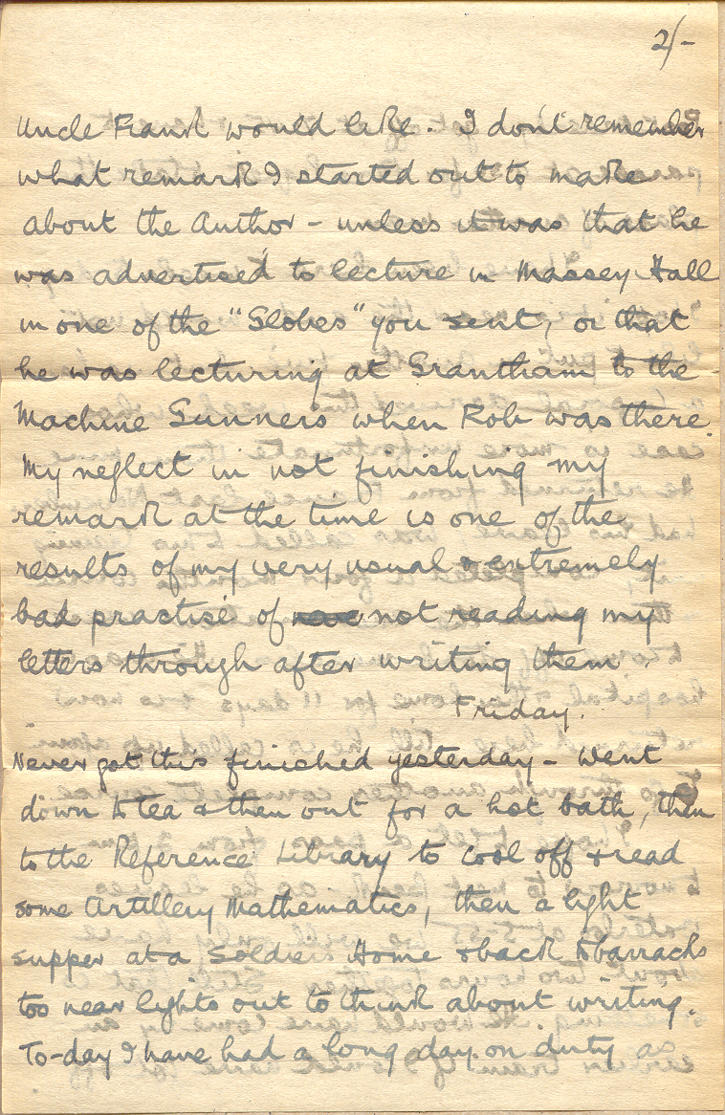 2/-
Uncle Frank would like. I don't remember
what remark I started out to make
about the Author - unless it was that he
was advertised to lecture in Massey Hall
in one of the "Globes" you sent, or that
he was lecturing at Grantham to the
Machine Gunners when Rob was there.
My neglect in not finishing my
remark at the time is one of the
results of my very usual & extremely
bad practise of not reading my
letters through after writing them.
Friday.
Never got this finished yesterday - Went
down to tea & then out for a hot bath, then
to the Reference Library to cool off & read
some Artillery Mathematics, then a light
supper at a Soldiers Home & back to barracks
too near lights out to think about writing.
To-day I have had a long day on duty as